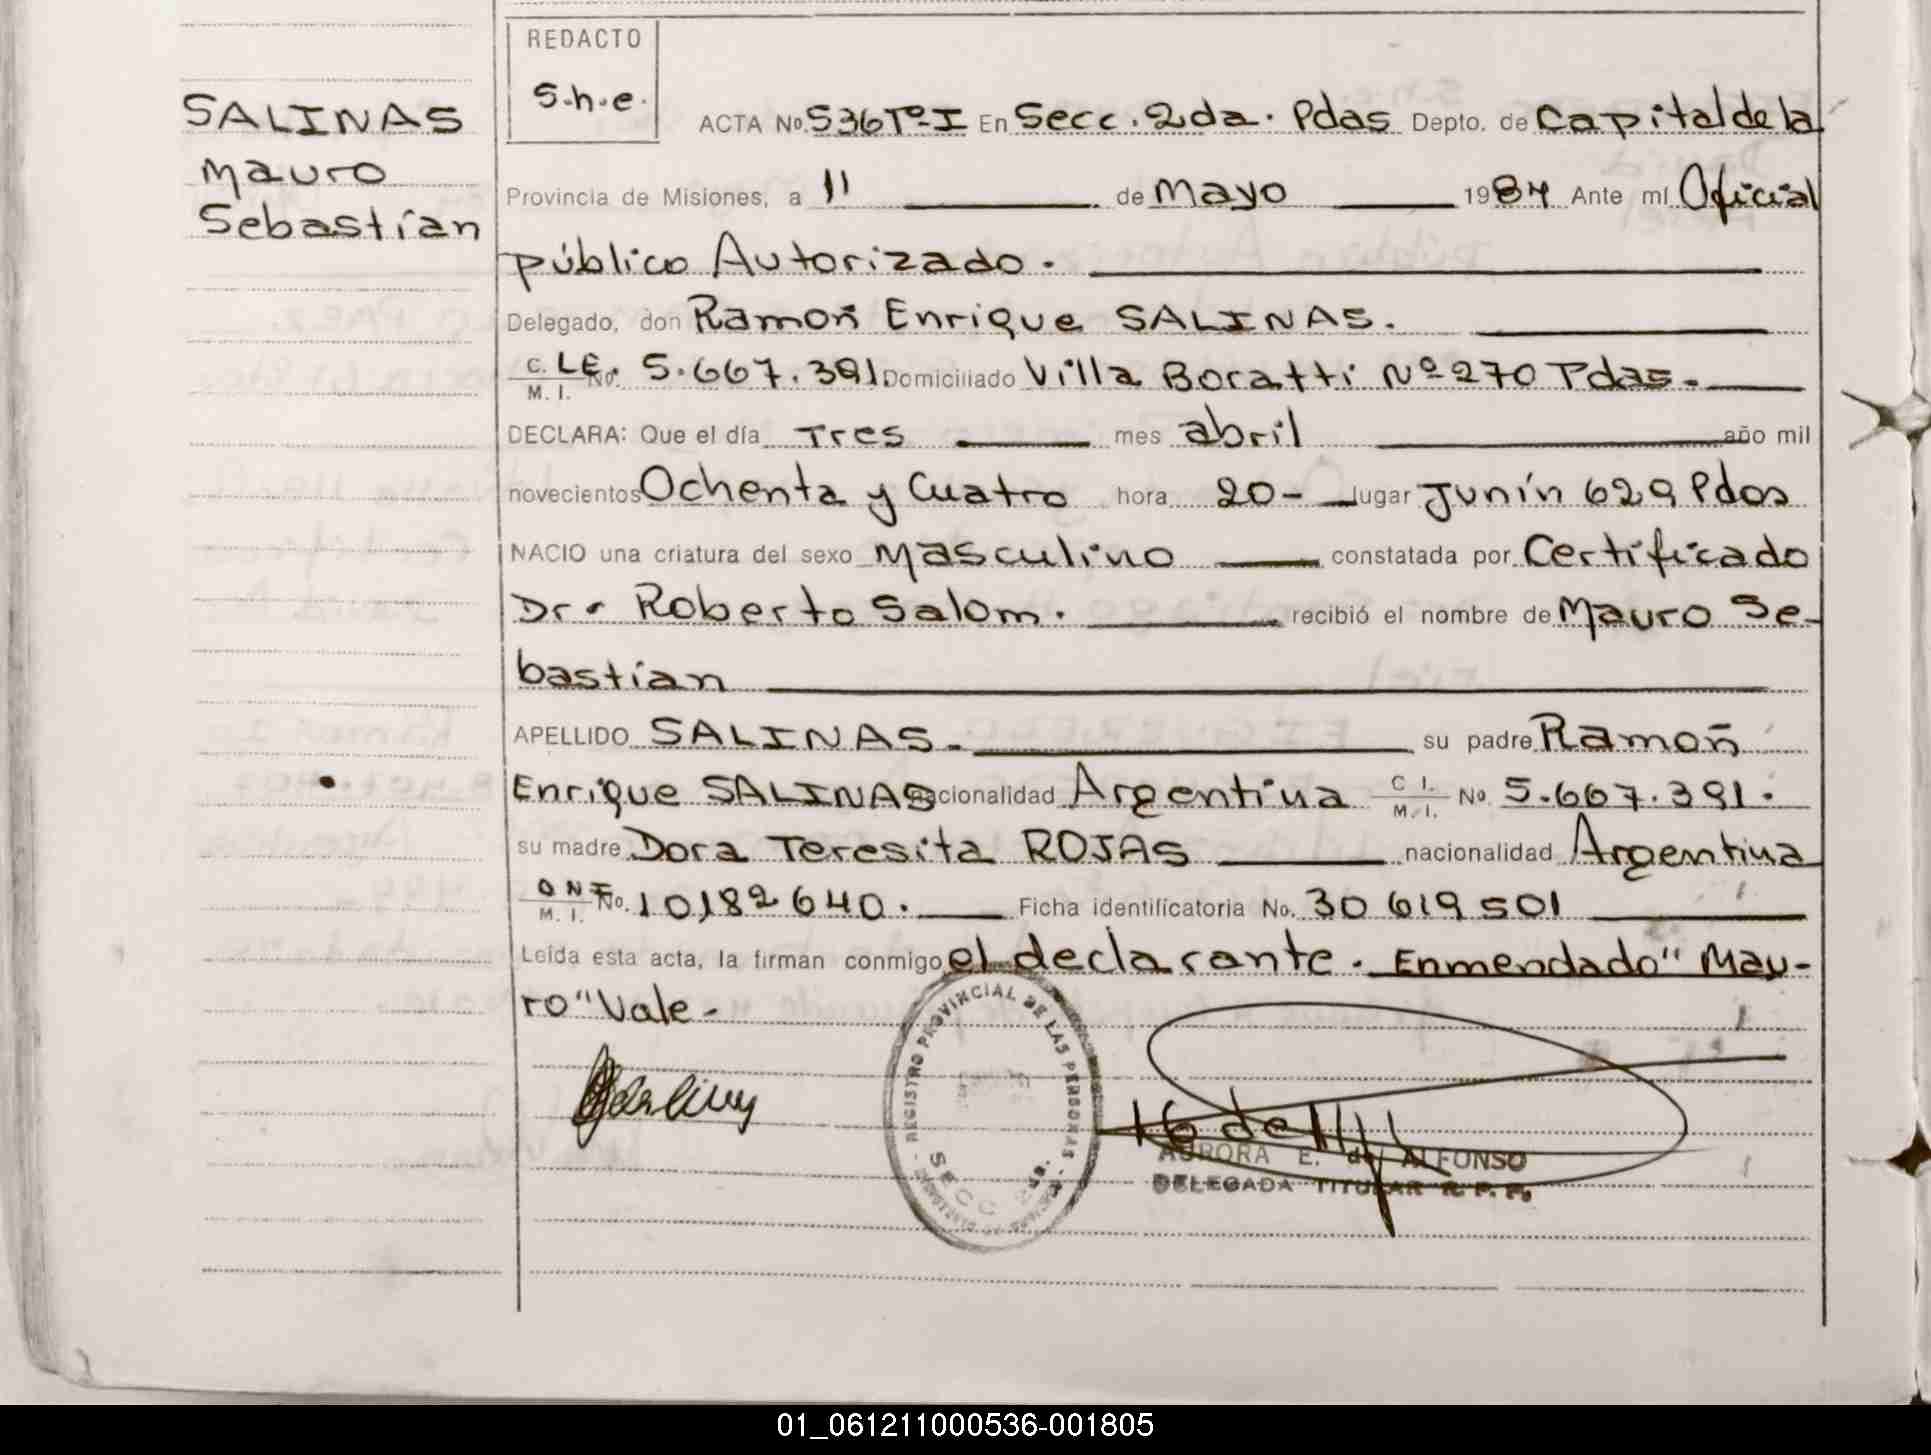 REDACTO
S.h.e.
SALINAS
Mauro
Sebastían
ACTA No. 536 Tº-I En Secc. 2da. Pdas Depto. de Capital de la
Provincia de Misiones, a 11 de Mayo 1984 Ante mí Oficial
público Autorizado.
Delegado, don Ramoń Enrique SALINAS.
C. LE. No. M. I. 5.667.391 Domiciliado Villa Boratti Nº 270 Pdas.
DECLARA: Que el día Tres mes abril año mil
novecientos Ochenta y Cuatro hora 20- lugar Junín 629 Pdas
NACIO una criatura del sexo Masculino constatada por Certificado
Dr. Roberto Salom. recibió el nombre de Mauro Se-
bastían
APELLIDO SALINAS. su padre Ramoń
Enrique SALINAS nacionalidad Argentina C I. M. I. No. 5.667.391.
su madre Dora Teresita ROJAS nacionalidad Argentina
D N I M. I. No. 10,182640. Ficha identificatoria No. 30 619 501
Leída esta acta, la firman conmigo el declarante. Enmendado "Mau-
ro" Vale-
REGISTRO PROVINCIAL DE LAS PERSONAS
SECC 2da.
AURORA E. de ALFONSO
DELEGADA TITULAR R. P. P.
01_061211000536-001805